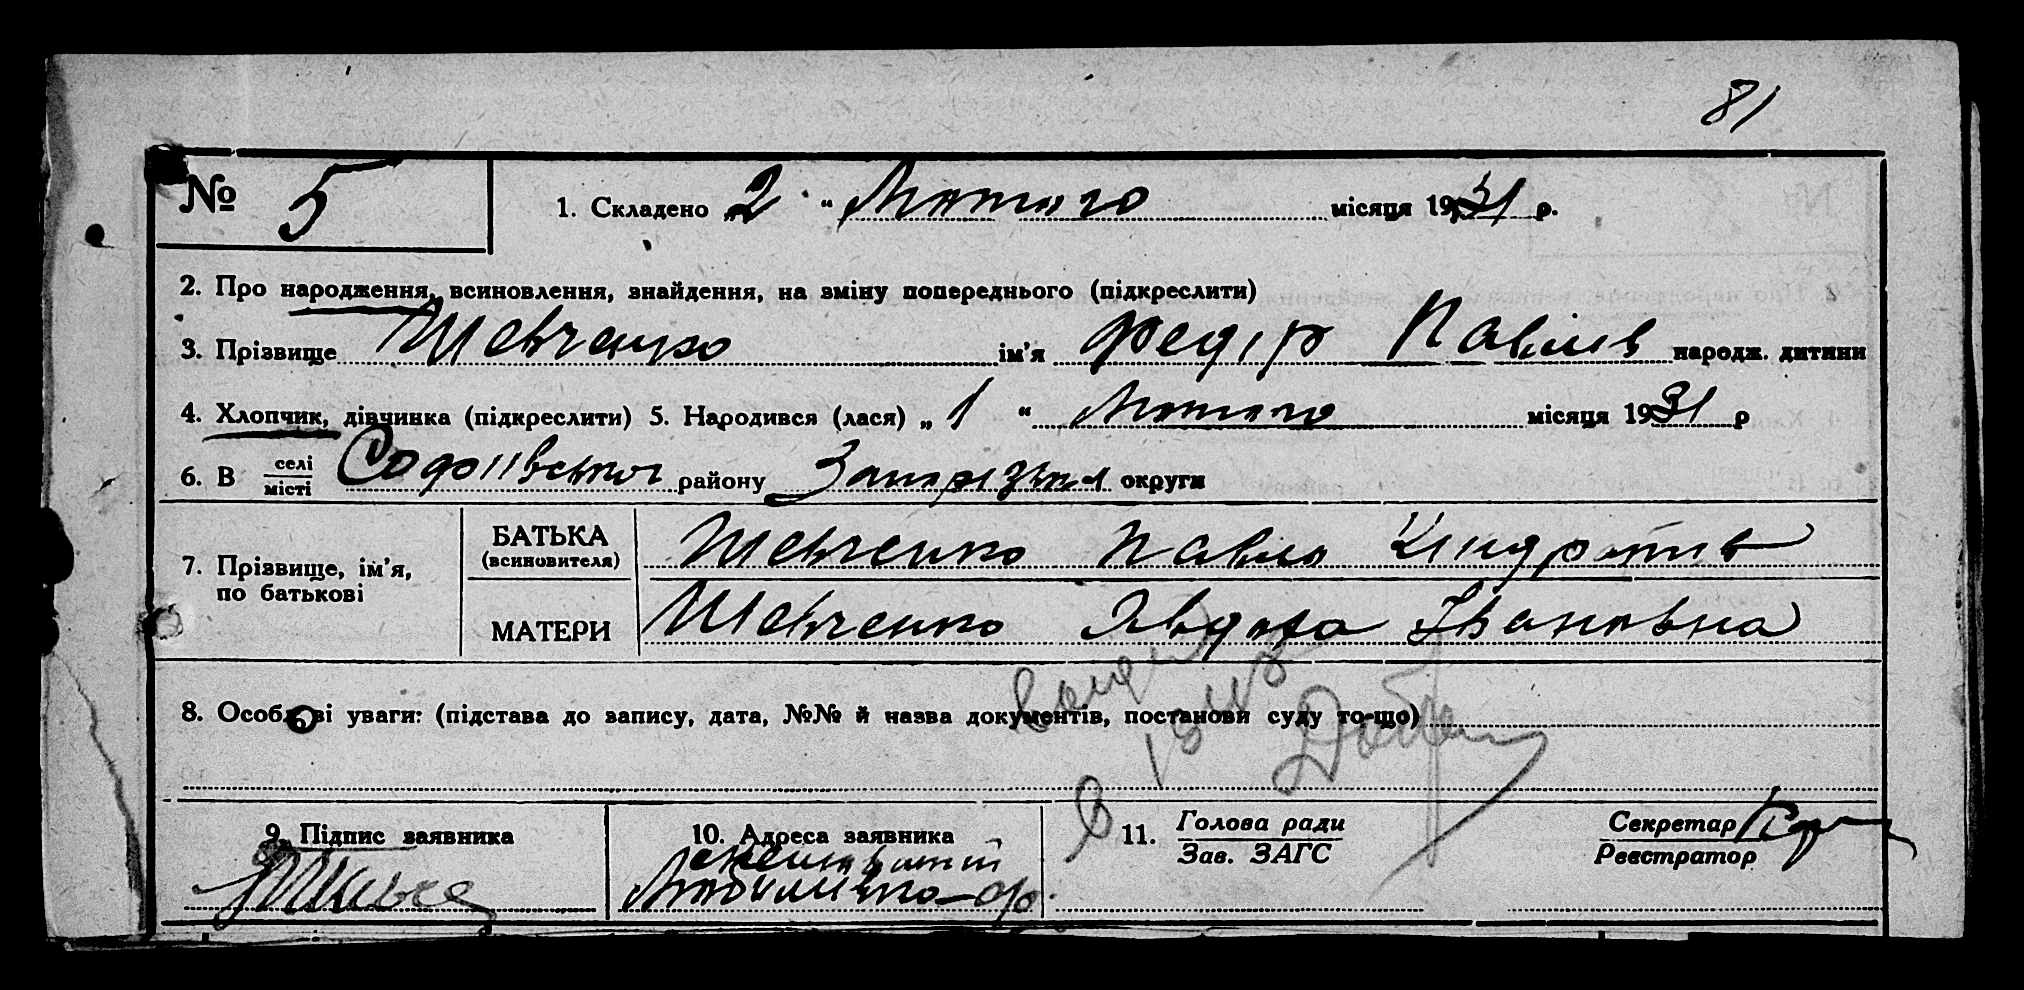 81
№ 5 1. Складено 2 “ Лютого місяця 1931 р.
2. Про народження, всиновлення, знайдення, на зміну попереднього (підкреслити)
3. Прізвище Шевченко ім’я Федір Павлів народж. дитини
4. Хлопчик, дівчинка (підкреслити) 5. Народився (лася) „ 1 “ Лютого місяця 1931 р
6. В селі місті Софіївської району Запорізької округи
7. Прізвище, ім’я, по батькові
БАТЬКА (всиновителя) Шевченко Павло Кіндратів
МАТЕРИ Шевченко Явдоха Івановна
8. Особливі уваги: (підстава до запису, дата, №№ й назва документів, постанови суду то-що)
9. Підпис заявника
10. Адреса заявника
11. Голова ради
Зав. ЗАГС
Секретар
Реєстратор